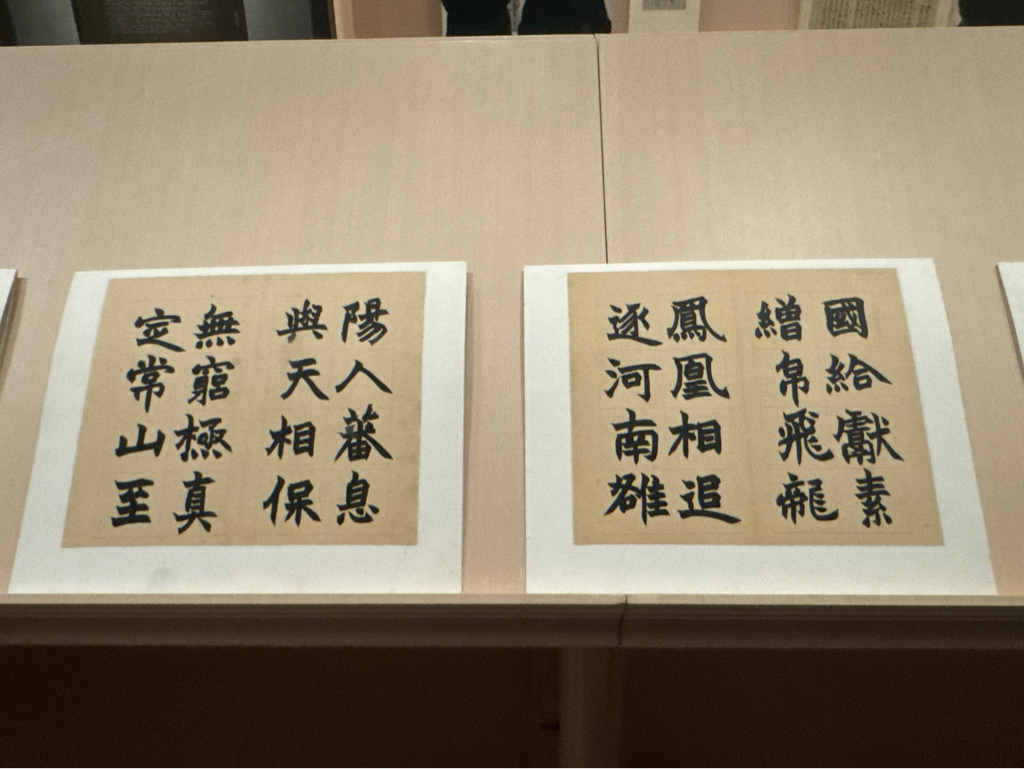 國給獻素
繒帛飛龍
鳳凰相追
逐河南雒
陽人蕃息
與天相保
無窮極真
定常山至